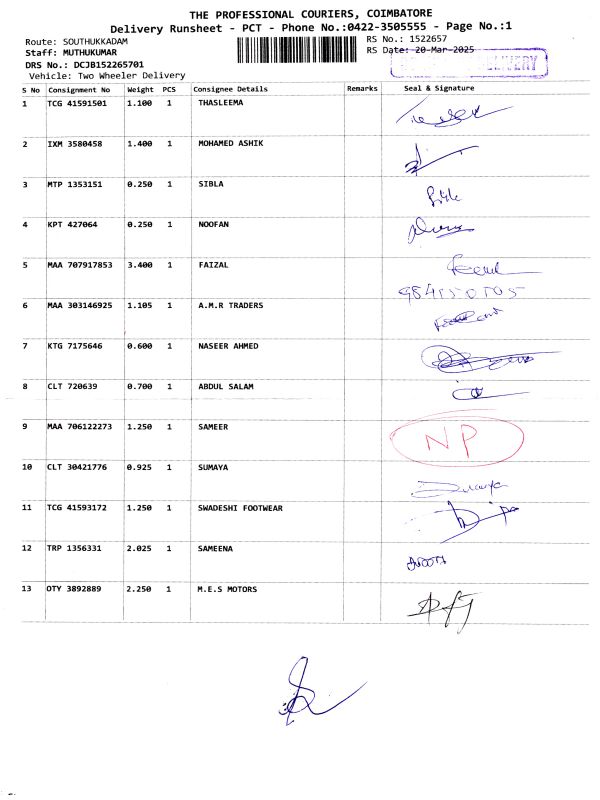 THE PROFESSIONAL COURIERS, COIMBATORE
Delivery Runsheet - PCT - Phone No.:0422-3505555 - Page No.:1
Route: SOUTHUKKADAM
RS No.: 1522657
Staff: MUTHUKUMAR
RS Date: 20-Mar-2025
DELIVERY
DRS No.: DCJB152265701
Vehicle: Two Wheeler Delivery
S No Consignment No Weight PCS Consignee Details Remarks Seal & Signature
1 TCG 41591501 1.100 1 THASLEEMA
2 IXM 3580458 1.400 1 MOHAMED ASHIK
3 MTP 1353151 0.250 1 SIBLA
4 KPT 427064 0.250 1 NOOFAN
5 MAA 707917853 3.400 1 FAIZAL
6 MAA 303146925 1.105 1 A.M.R TRADERS
7 KTG 7175646 0.600 1 NASEER AHMED
8 CLT 720639 0.700 1 ABDUL SALAM
9 MAA 706122273 1.250 1 SAMEER NP
10 CLT 30421776 0.925 1 SUMAYA
11 TCG 41593172 1.250 1 SWADESHI FOOTWEAR
12 TRP 1356331 2.025 1 SAMEENA
13 OTY 3892889 2.250 1 M.E.S MOTORS